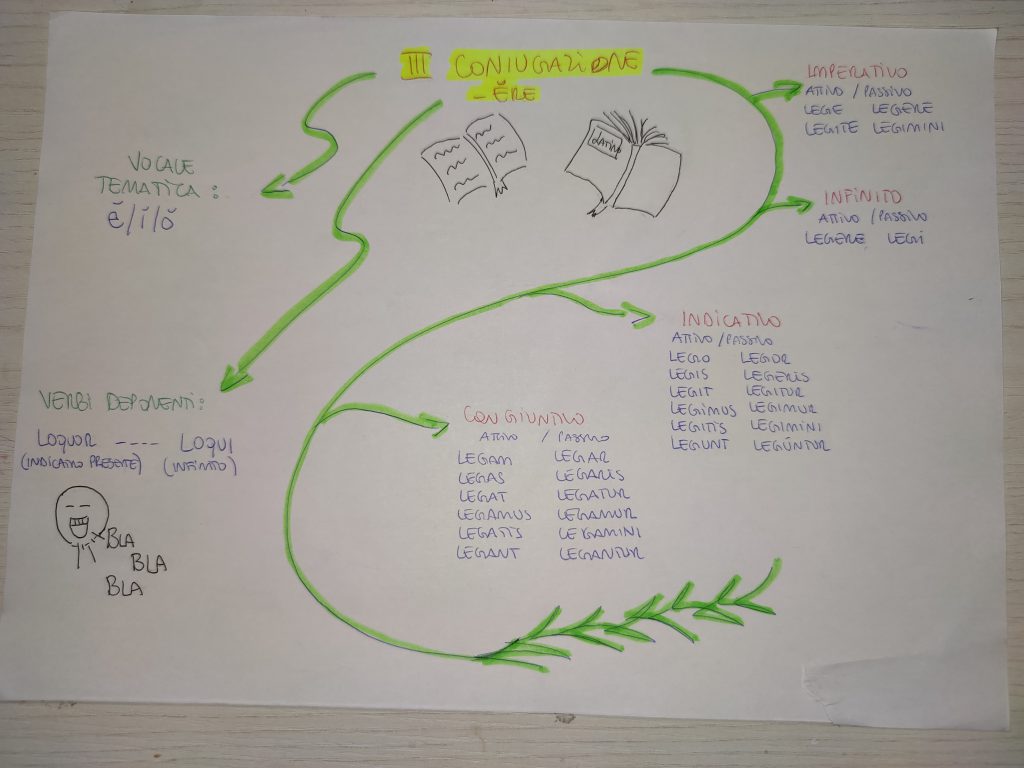 III CONIUGAZIONE
- ĔRE
LATINO
VOCALE
TEMATICA:
ĕ/ĭ/ŏ
VERBI DEPONENTI:
LOQUOR ---- LOQUI
(INDICATIVO PRESENTE) (INFINITO)
BLA
BLA
BLA
IMPERATIVO
ATTIVO / PASSIVO
LEGE LEGERE
LEGITE LEGIMINI
INFINITO
ATTIVO / PASSIVO
LEGERE LEGI
INDICATIVO
ATTIVO / PASSIVO
LEGO LEGOR
LEGIS LEGERIS
LEGIT LEGITUR
LEGIMUS LEGIMUR
LEGITIS LEGIMINI
LEGUNT LEGÚNTUR
CONGIUNTIVO
ATTIVO / PASSIVO
LEGAM LEGAR
LEGAS LEGARIS
LEGAT LEGATUR
LEGAMUS LEGAMUR
LEGATIS LEGAMINI
LEGANT LEGANTUR